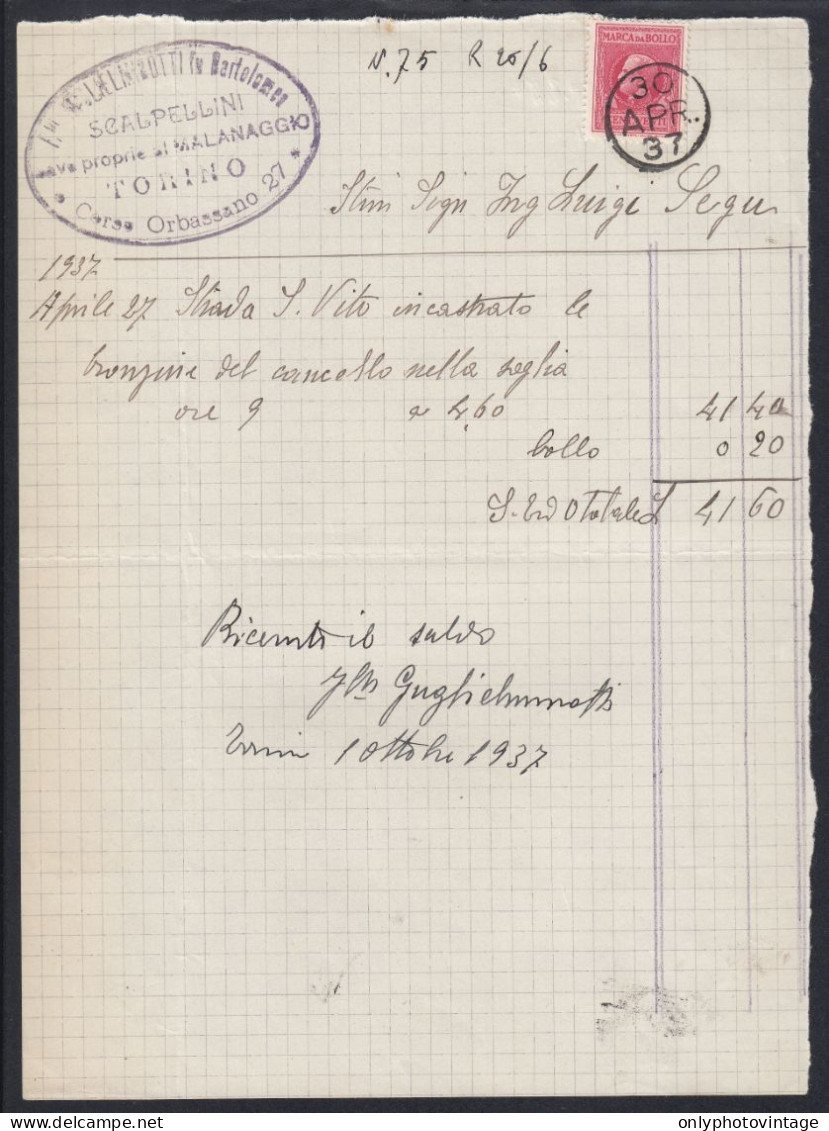 Bartolomeo
SCALPELLINI
Cave proprie al MALANAGGIO
TORINO
Corso Orbassano 27
N. 75 R 26/6
MARCA DA BOLLO
30
APR.
37
Ing Luigi Segre
1937
Aprile 27 Strada S. Vito incastrato le
bronzine del cancello nella soglia
ore 9 a 4,60 41 40
bollo 0 20
Totale L 41 60
Ricevuto il saldo
Guglielminotti
1 Ottobre 1937
delcampe.net
onlyphotovintage